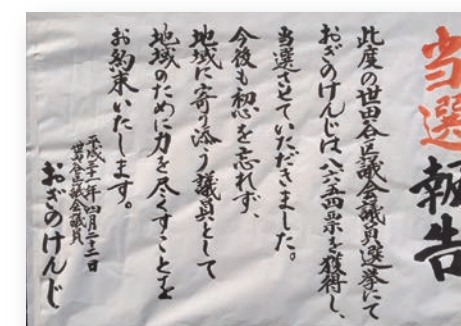 当選報告
此度の世田谷区議会議員選挙にて
おぎのけんじは八六五四票を獲得し、
当選させていただきました。
今後も初心を忘れず、
地域に寄り添う議員として
地域のために力を尽くすことを
お約束いたします。
平成三十一年四月二十二日
世田谷区議会議員
おぎのけんじ